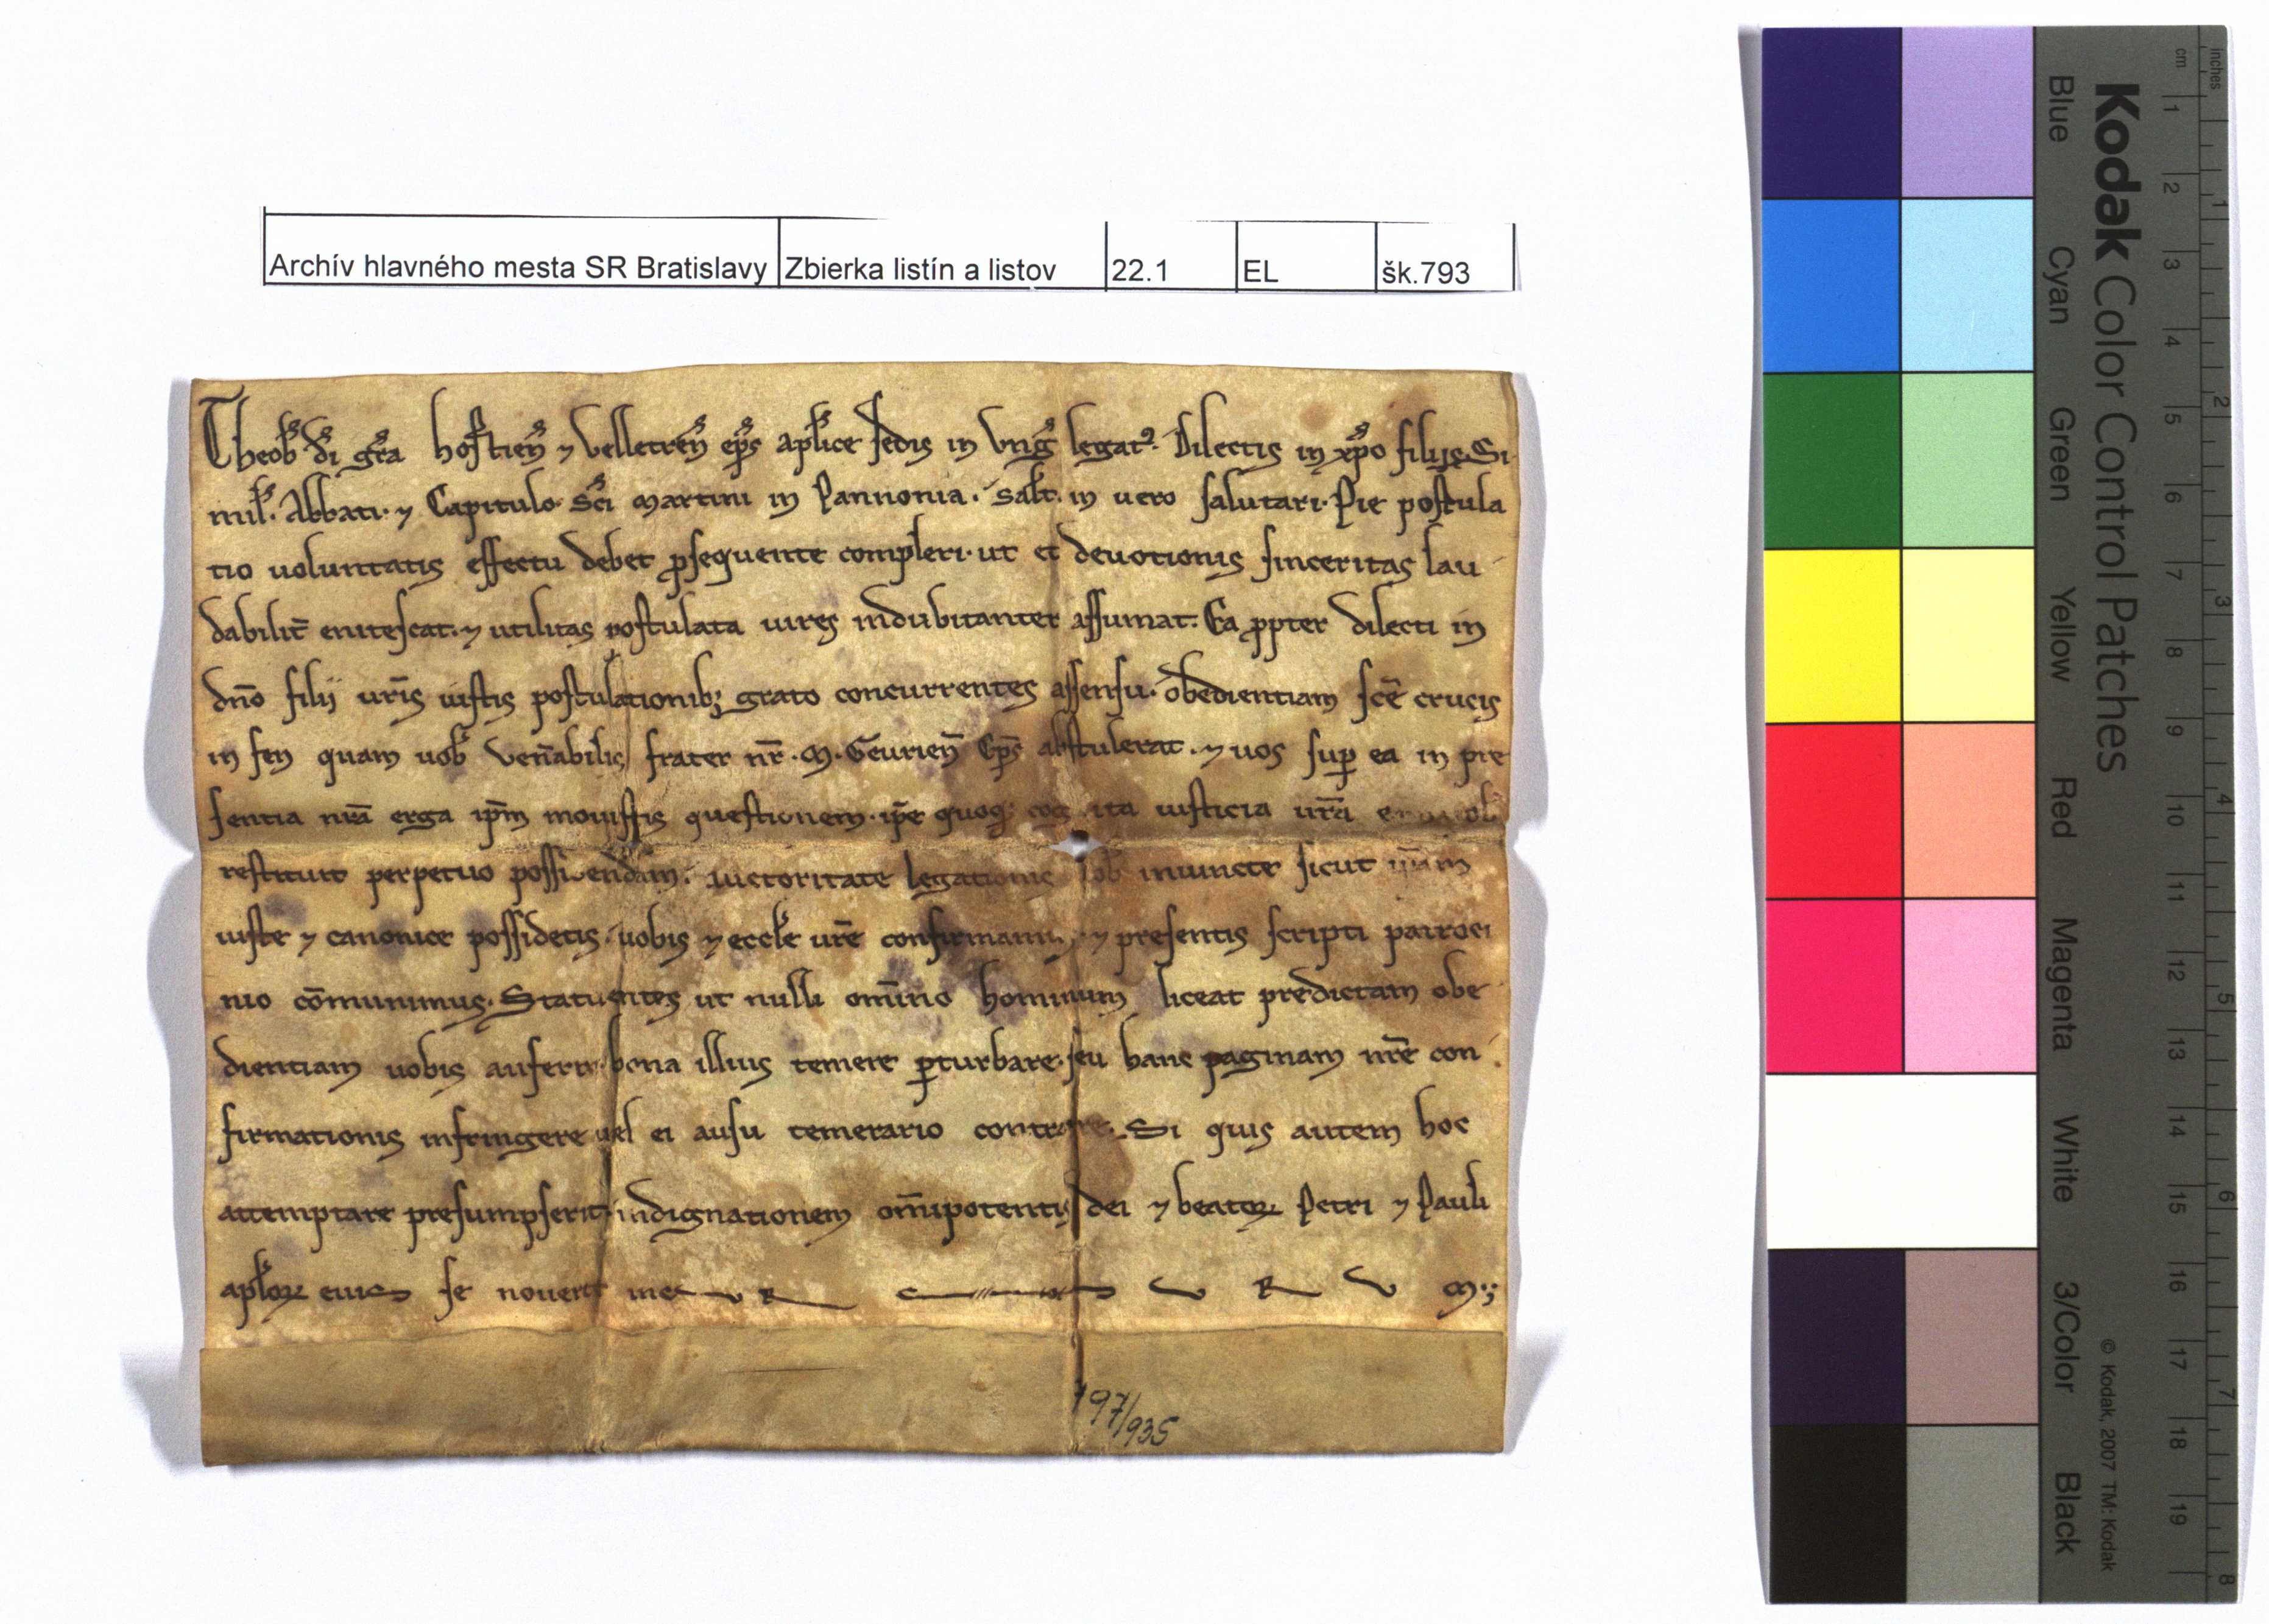 Archív hlavného mesta SR Bratislavy Zbierka listín a listov 22.1 EL šk.793
Theob̄ di gr̄a hostien̄ ⁊ velletren̄ ep̄s ap̄lice sedis in Vnḡ legatꝰ. Dilectis in xp̄o filijs Si
mil̄. Abbati ⁊ Capitulo Sc̄i martini in Pannonia. Salt̄. in uero salutari. Pie postula
tio uoluntatis effectu debet ꝓsequente compleri. ut et deuotionis sinceritas lau
dabilit̄ enitescat. ⁊ utilitas postulata uires indubitanter assumat. Ea ꝓpter dilecti in
dn̄o filij ur̄is iustis postulationib; grato concurrentes assensu. obedientiam sc̄e crucis
in fen quam uob̄ ven̄abilis frater nr̄. M. Geurien̄ Ep̄s abstulerat. ⁊ uos suꝑ ea in pre
sentia nr̄a erga ip̄m mouistis questionem. ip̄e quoq; ita iusticia ur̄a
restituit perpetuo possidendam. auctoritate legationis nob̄ iniuncte sicut
iuste ⁊ canonice possidetis. uobis ⁊ eccl̄e ur̄e confirmamus. ⁊ presentis scripti patroci
nio cōmunimus. Statuentes ut nulli om̄ino hominum liceat predictam obe
dientiam uobis auferre. bona illius temere ꝑturbare. seu hanc paginam nr̄e con
firmationis infringere uel ei ausu temerario contraire. Si quis autem hoc
attemptare presumpserit. indignationem om̄ipotentis dei ⁊ beatoꝝ Petri ⁊ Pauli
ap̄loꝝ eius se nouerit inc U R S U R U M.
197/935
Kodak Color Control Patches
Blue Cyan Green Yellow Red Magenta White 3/Color Black
© Kodak, 2007 TM: Kodak
cm 1 2 3 4 5 6 7 8 9 10 11 12 13 14 15 16 17 18 19
inches 1 2 3 4 5 6 7 8